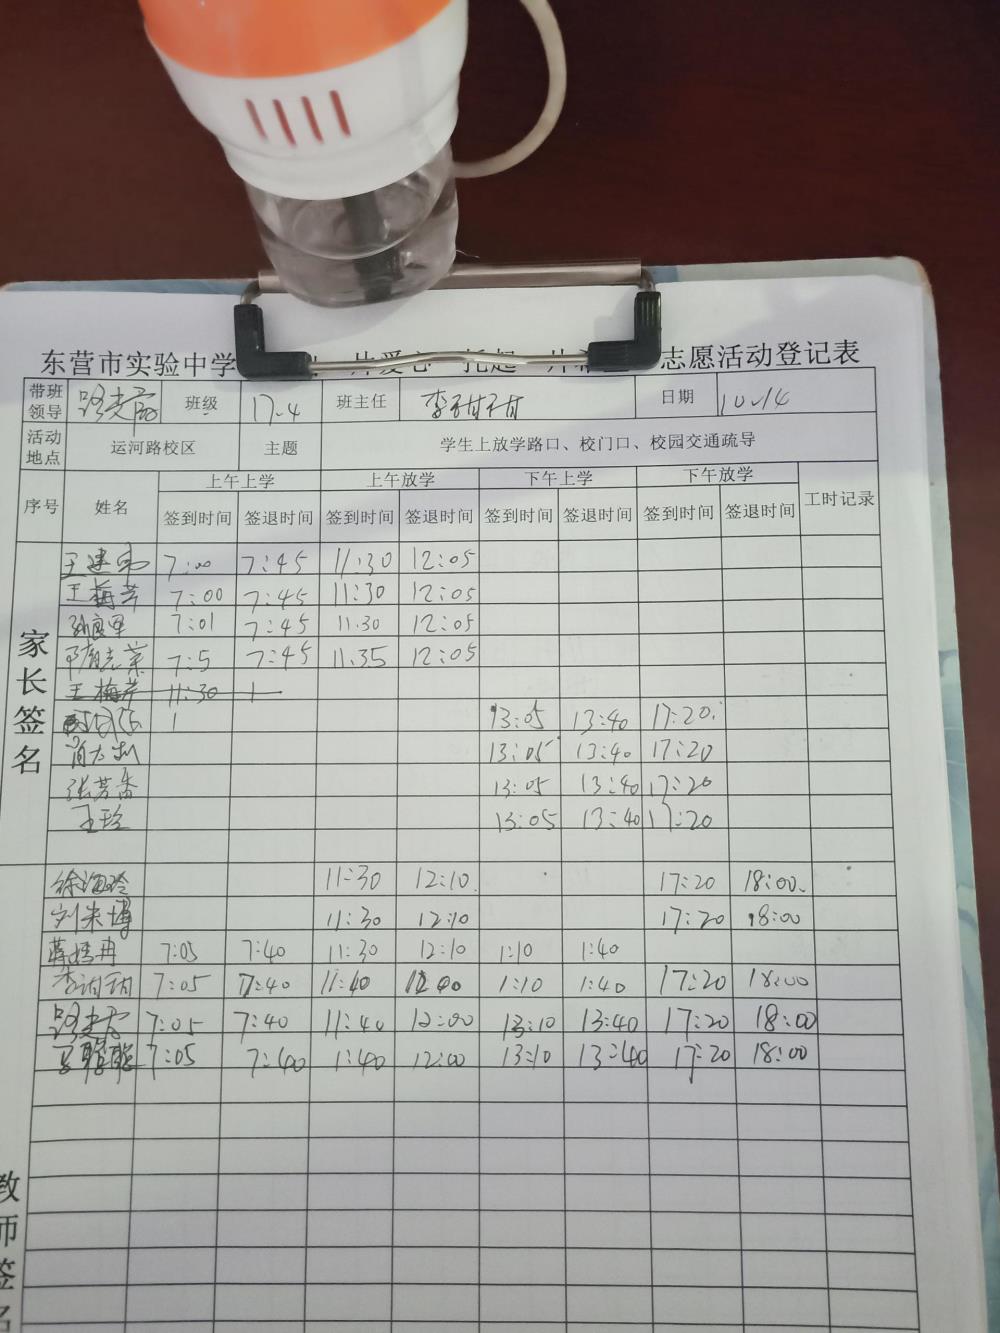 东营市实验中学 志愿活动登记表
带班领导 班级 17-4 班主任 李甜甜 日期 10.14
活动地点 运河路校区 主题 学生上放学路口、校门口、校园交通疏导
序号 姓名 上午上学 上午放学 下午上学 下午放学 工时记录
签到时间 签退时间 签到时间 签退时间 签到时间 签退时间 签到时间 签退时间
家长签名
7:00 7:45 11:30 12:05
王梅芳 7:00 7:45 11:30 12:05
7:01 7:45 11.30 12:05
7:5 7:45 11:35 12:05
王梅芳 11:30
13:05 13:40 17:20
13:05 13:40 17:20
张芳香 13:05 13:40 17:20
王玲 13:05 13:40 17:20
徐海玲 11:30 12:10 17:20 18:00
刘 博 11:30 12:10 17:20 18:00
7:05 7:40 11:30 12:10 1:10 1:40
7:05 7:40 11:40 12:00 1:10 1:40 17:20 18:00
7:05 7:40 11:40 12:00 13:10 13:40 17:20 18:00
7:05 7:40 1:40 12:00 13:10 13:40 17:20 18:00
教师签名